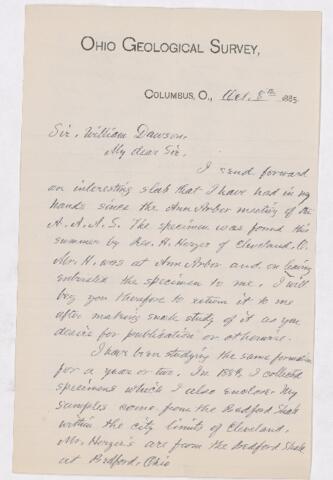 OHIO GEOLOGICAL SURVEY,
COLUMBUS, O., Oct. 8th 1885.
Sir. William Dawson,
My dear Sir.
I send forward
an interesting slab that I have had in my
hands since the Ann Arbor meeting of the
A. A. A. S. The specimen was found this
summer by Rev. H. Herzer of Cleveland, O.
Mr. H. was at Ann Arbor and, on leaving
entrusted the specimen to me. I will
beg you therefore to return it to me
after making such study of it as you
desire for publication or otherwise.
I have been studying the same formation
for a year or two. In 1884, I collected
specimens which I also enclose. My
samples come from the Bedford Shale
within the city limits of Cleveland.
Mr. Herzer's are from the Bedford Shale
at Bedford, Ohio